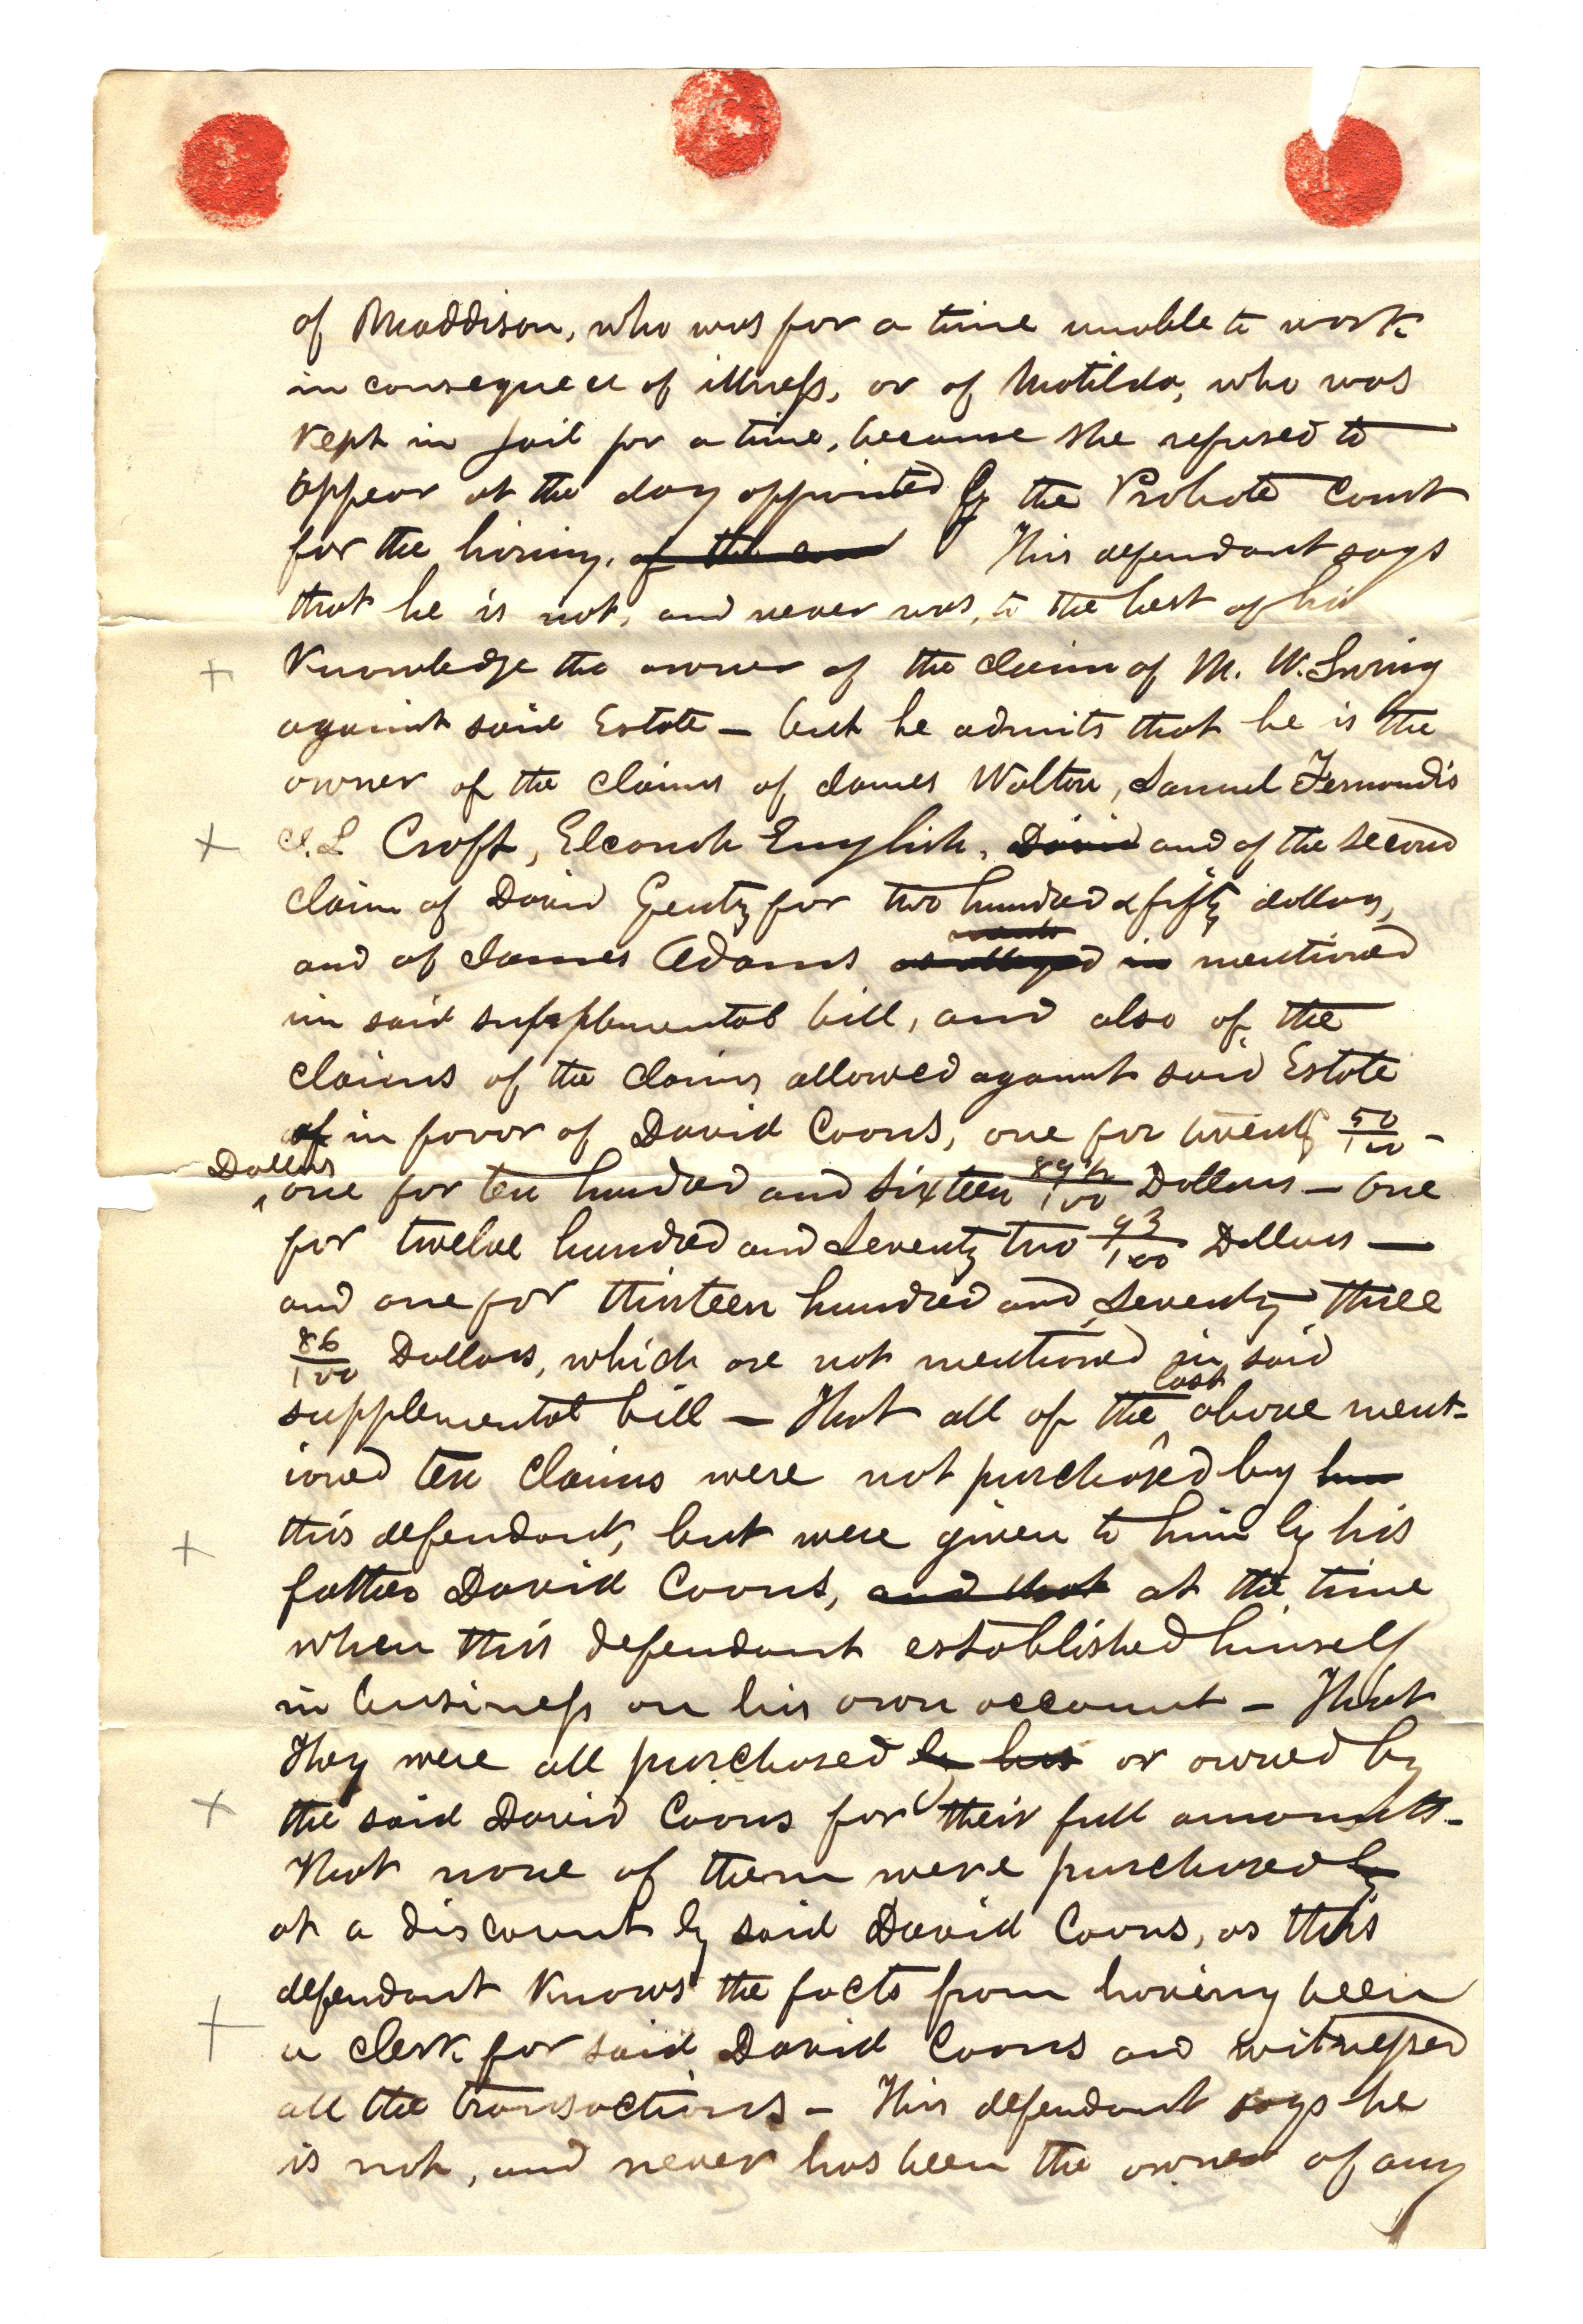 of Maddison, who was for a time unable to work
in consequence of illness, or of Matilda, who was
Kept in jail for a time, because she refused to
appear at the day appointed by the Probate Court
for the hiring. of the This defendant says
that he is not, and never was, to the best of his
Knowledge the owner of the claim of M. W.
against said Estate – but he admits that he is the
owner of the claims of James Walton, Samuel Fernandis
J. L Croft, Eleanor English, David and of the second
claim of David Gentz for two hundred & fifty dollars,
and of James Adams as alleged in mentioned
in said supplemental bill, and also of the
claims of the claims allowed against said Estate
of in favor of David Coons, one for twenty 50/100 –
Dollars
one for ten hundred and sixteen 89½/100 Dollars – One
for twelve hundred and Seventy two 93/100 Dollars —
and one for thirteen hundred and Seventy three
86/100 Dollars, which are not mentioned in said
supplemental bill – That all of the last above ment-
ioned ten claims were not purchased by him
this defendant, but were given to him by his
father David Coons, and that at the time
when this defendant established himself
in business on his own account – That
They were all purchased by his or owned by
the said David Coons for their full amounts –
That none of them were purchased by
at a discount by said David Coons, as this
defendant Knows the facts from having been
a clerk for said David Coons and witnessed
all the transactions – This defendant says he
is not, and never has been the owner of any